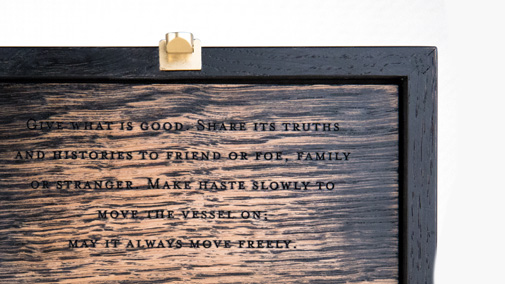 Give what is good. Share its truths
and histories to friend or foe, family
or stranger. Make haste slowly to
move the vessel on;
may it always move freely.